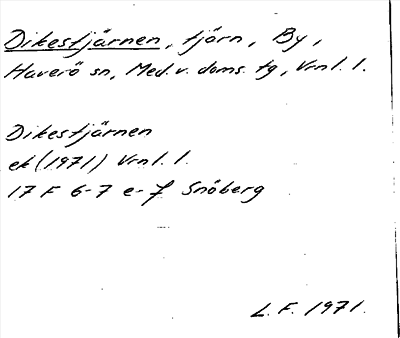 Dikestjärnen, tjärn, By,
Haverö sn, Med. v. doms. tg, Vrnl. l.
Dikestjärnen
ek (1971) Vrnl. l.
17 F 6-7 e-f Snöberg
L. F. 1971.